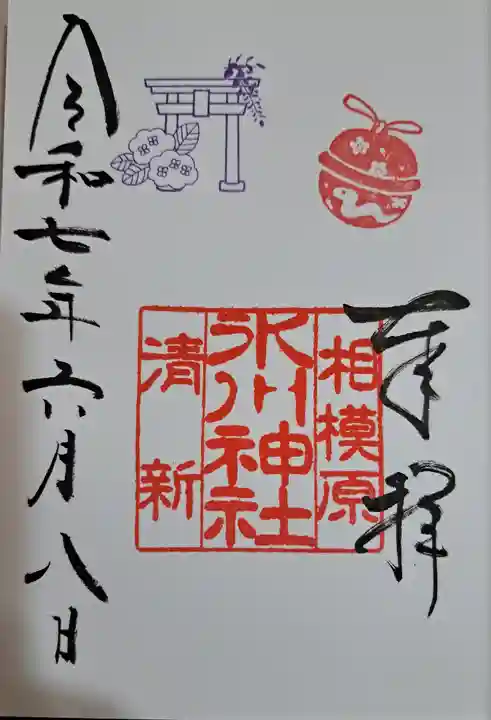 奉拝
相模原
氷川神社
清新
令和七年六月八日